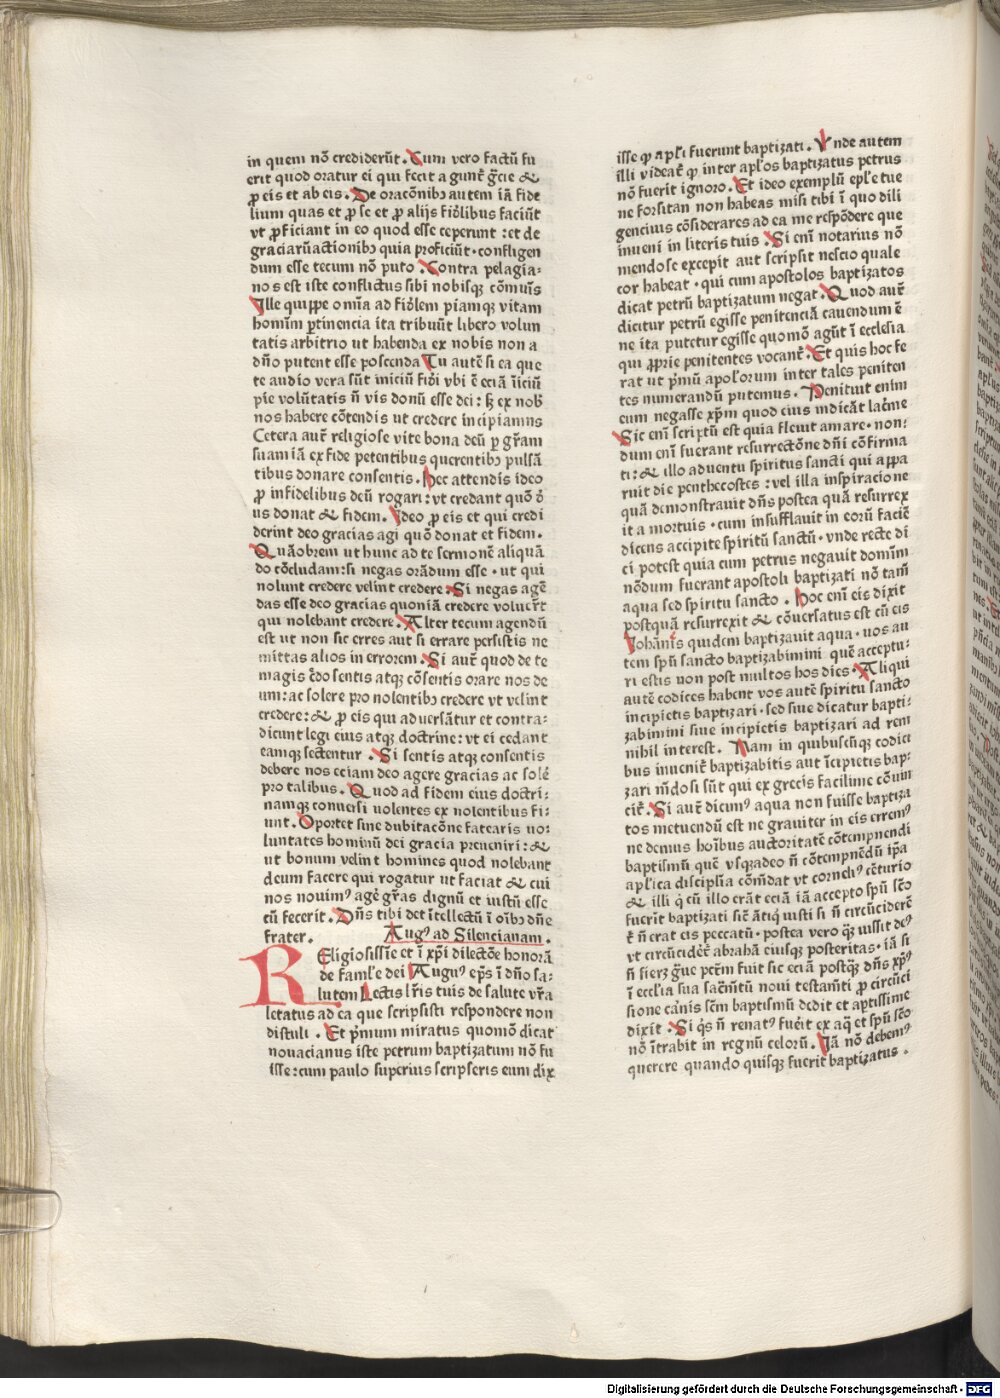 in quem nō crediderūt. Cum vero factū fu
erit quod oratur ei qui fecit agunt̃ gr̃cie &
ꝓ eis et ab eis. De oracōnibꝰ autem iā fide
lium quas et ꝓ se et ꝓ alijs fid̃libus faciūt
vt ꝓficiant in eo quod esse ceperunt : et de
graciarū actionibꝰ quia proficiūt · confligen
dum esse tecum nō puto. Contra pelagia-
nos est iste conflictus tibi nobisqꝫ cōmūis
Ille quippe om̄ia ad fid̃lem piamqꝫ vitam
homim̄ ꝑtinencia ita tribuūt libero volun
tatis arbitrio ut habenda ex nobis non a
dn̄o putent esse poscenda Tu autē si ea que
te audio vera sūt iniciū fid̃i vbi ē eciā īiciū
pie volūtatis n̄ vis donū esse dei : sꝫ ex nob̃
nos habere cōtendis ut credere incipiamus
Cetera aut̃ religiose vite bona deū ꝑ gr̃am
suam iā ex fide petentibus querentibꝰ pulsā
tibus donare consentis. Nec attendis ideo
ꝓ infidelibus deū rogari : vt credant quō d̃
us donat & fidem. Ideo ꝓ eis et qui credi
derint deo gracias agi quō donat et fidem.
Quāobrem ut hunc ad te sermonē aliquā
do cōcludam : si negas orādum esse · ut qui
nolunt credere velint credere · Si negas agē
das esse deo gracias quoniā credere voluer̃t
qui nolebant credere. Alter tecum agendū
est ut non sic erres aut si errare persistis ne
mittas alios in errorem. Si aut̃ quod de te
magis c̃do sentis atqꝫ cōsentis orare nos de
um : ac solere pro nolentibꝰ credere vt velint
credere : & ꝓ eis qui aduersātur et contra-
dicunt legi eius atqꝫ doctrine : vt ei cedant
eamqꝫ sectentur . Si sentis atqꝫ consentis
debere nos eciam deo agere gracias ac solē
pro talibus. Quod ad fidem eius doctri-
namqꝫ conuersi uolentes ex nolentibus fi-
unt. Oportet sine dubitacōne fatearis uo-
luntates hominū dei gracia preueniri : &
ut bonum velint homines quod nolebant
deum facere qui rogatur ut faciat & cui
nos nouimꝰ agē gr̃as dignū et iustū esse
cū fecerit. Dn̄s tibi det ītellectū ī oībꝰ dn̄e
frater.
Augꝰ ad Silencianam.
REligiosissīe et ī xp̄i dilectōe honorā
de faml̃e dei Augꝰ ep̄s ī dn̄o sa-
lutem Lectis lr̃is tuis de salute vr̃a
letatus ad ea que scripsisti respondere non
distuli . Et pr̄mum miratus quomō dicat
nouacianus iste petrum baptizatum nō fu
isse : cum paulo superius scripseris eum dix
isse qꝫ apl̃i fuerunt baptizati. Vnde autem
illi videat̃ qꝫ inter apl̃os baptizatus petrus
nō fuerit ignoro. Et ideo exemplū epl̃e tue
ne forsitan non habeas misi tibi ī quo dili
gencius cōsiderares ad ea me respōdere que
inueni in literis tuis. Si enī notarius nō
mendose excepit aut scripsit nescio quale
cor habeat · qui cum apostolos baptizatos
dicat petrū baptizatum negat. Quod aut̃
dicitur petrū egisse penitenciā cauendum ē
ne ita putetur egisse quomō agūt ī ecclesia
qui ꝓprie penitentes vocant̃. Et quis hoc fe
rat ut pr̄mū apol̃orum inter tales peniten
tes numerandū putemus. Penituit enim
eum negasse xp̄m quod eius indicāt lac̃me
Sic enī scriptū est quia fleuit amare · non-
dum enī fuerant resurrectōne dn̄i cōfirma
ti : & illo aduentu spiritus sancti qui appa
ruit die penthecostes : vel illa inspiracione
quā demonstrauit dn̄s postea quā resurrex
it a mortuis · cum insufflauit in eorū faciē
dicens accipite spiritū sanctū · vnde recte di
ci potest quia cum petrus negauit dominī
nōdum fuerant apostoli baptizati nō tam̄
aqua sed spiritu sancto . Hoc enī eis dixit
postquā resurrexit & cōuersatus est cū eis
Johānis quidem baptizauit aqua · vos au
tem spū sancto baptizabimini quē acceptu-
ri estis non post multos hos dies. Aliqui
autē codices habent vos autē spiritu sancto
incipietis baptizari · sed siue dicatur bapti-
zabimini siue incipietis baptizari ad rem
nihil interest. Nam in quibuscūqꝫ codici
bus inuenit̃ baptizabitis aut īcipietis bap-
zari m̄dosi sūt qui ex grecis facilime cōuin
cit̃. Si aut̃ dicimꝰ aqua non fuisse baptiza
tos metuendū est ne grauiter in eis erremꝰ
ne demus hoībus auctoritatē cōtempnendi
baptismū quē vsqꝫadeo n̄ cōtempnēdū ip̄a
apl̃ica disciplīa cōm̄dat vt cornelīꝰ cēturio
& illi q̇ cū illo erāt eciā iā accepto spū scō
fuerīt baptizati sic̄ ātiq̇ iusti si n̄ circūciderē
t̃ n̄ erat eis peccatū · postea vero qꝫ iussit deꝰ
vt circūcideret̃ abrahā eiusqꝫ posteritas · iā si
n̄ fierꝫ g̃ue pct̄m fuit sic eciā postqꝫ dn̄s xp̄ꝰ
ī eccl̃ia sua sac̄mtū noui testam̄ti ꝓ circūci
sione carnis scm̄ baptismū dedit et aptissime
dixit. Si q̇s n̄ renatꝰ fuerit ex aq̄ et spū scō
nō ītrabit in regnū celorū. Iā nō debemꝰ
querere quando quisqꝫ fuerit baptizatus .
Digitalisierung gefördert durch die Deutsche Forschungsgemeinschaft - DFG